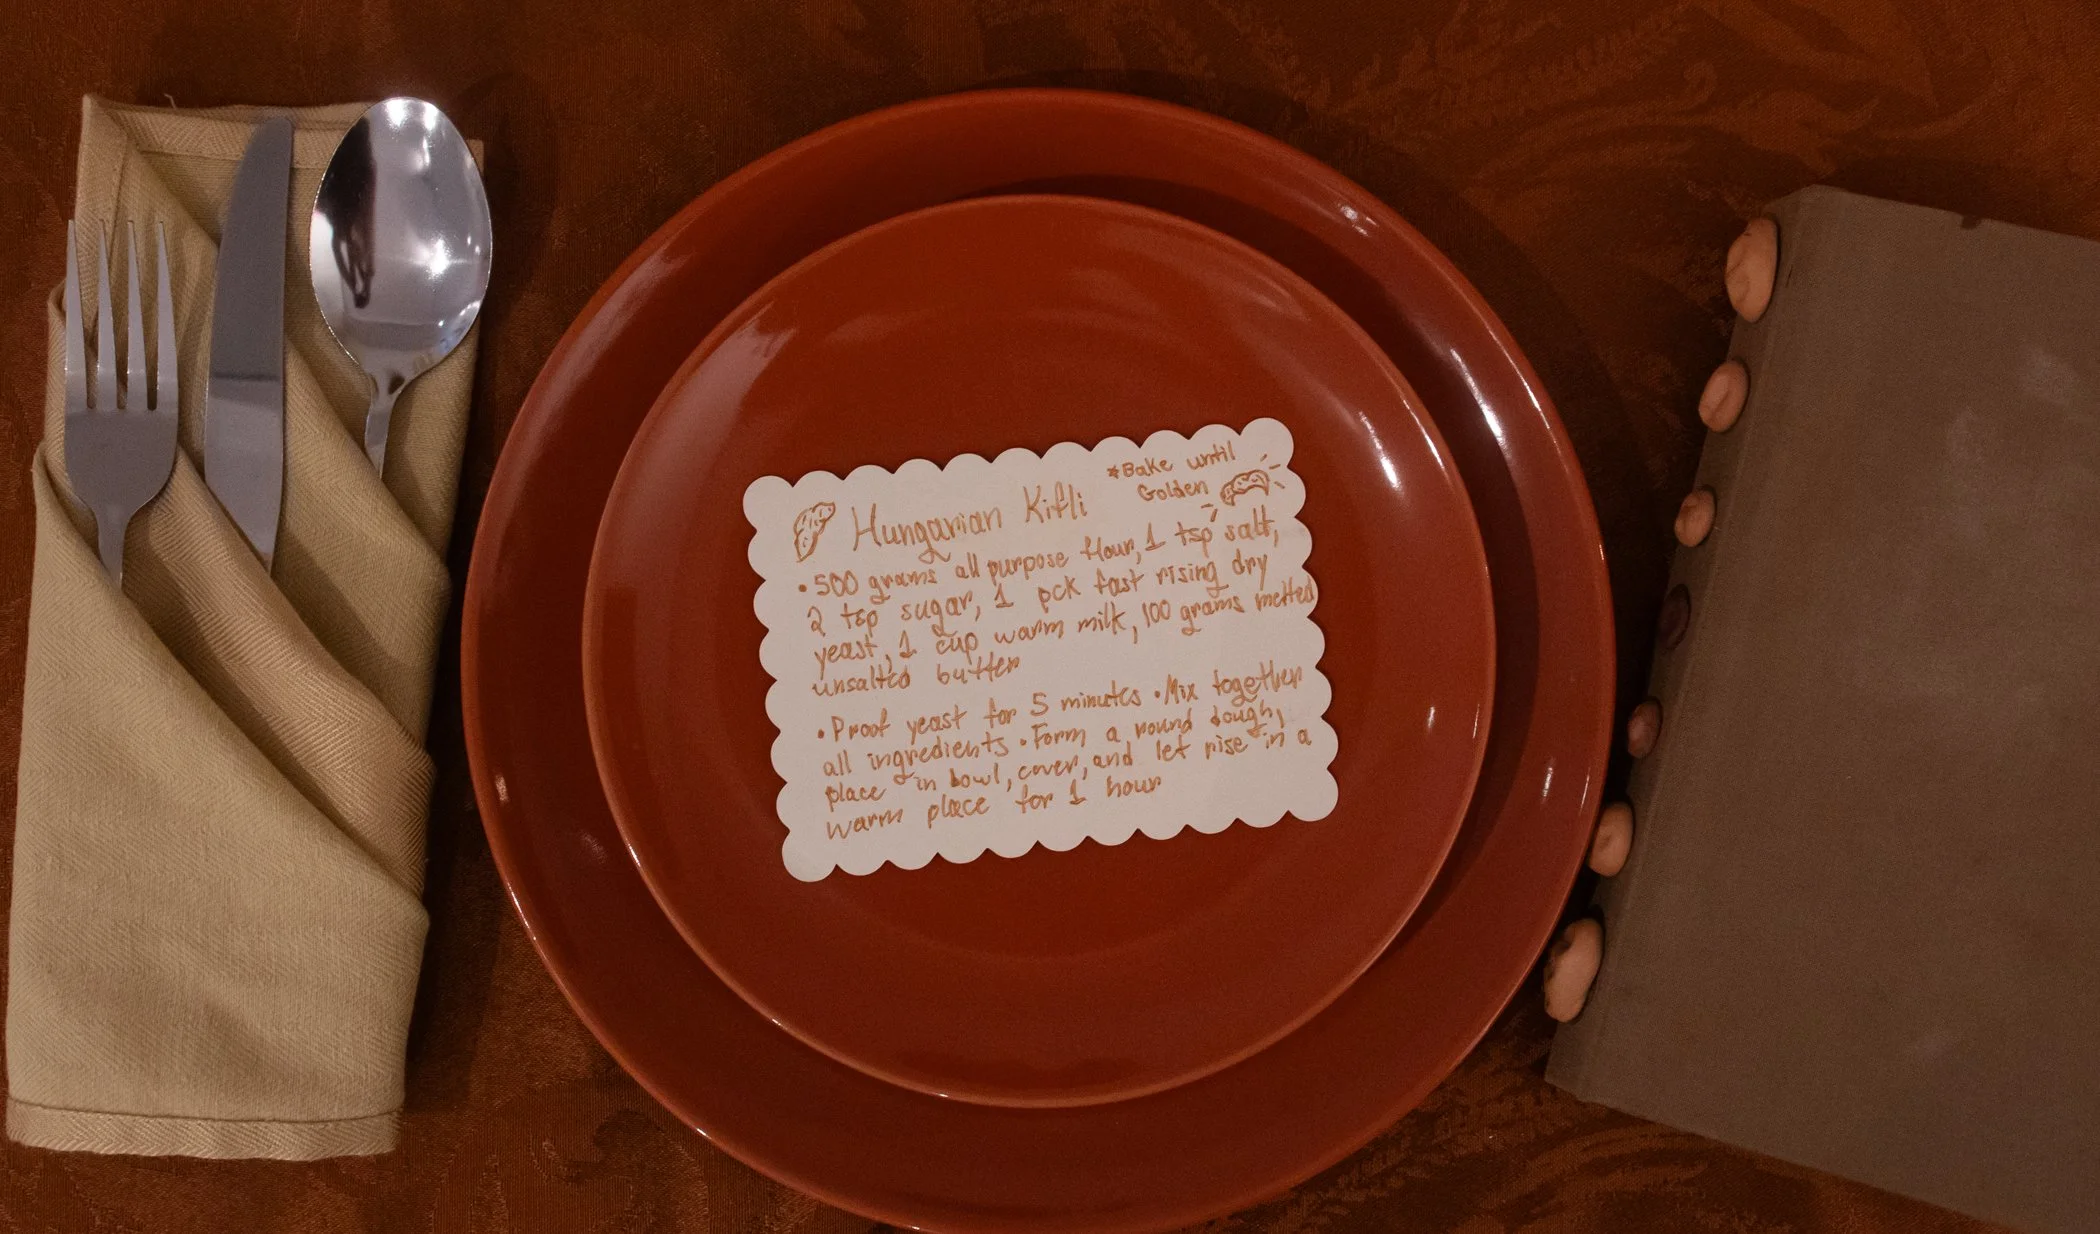 Hungarian Kifli
*Bake until
Golden
• 500 grams all purpose flour, 1 tsp salt,
2 tsp sugar, 1 pck fast rising dry
yeast, 1 cup warm milk, 100 grams melted
unsalted butter
• Proof yeast for 5 minutes • Mix together
all ingredients • Form a round dough,
place in bowl, cover, and let rise in a
warm place for 1 hour